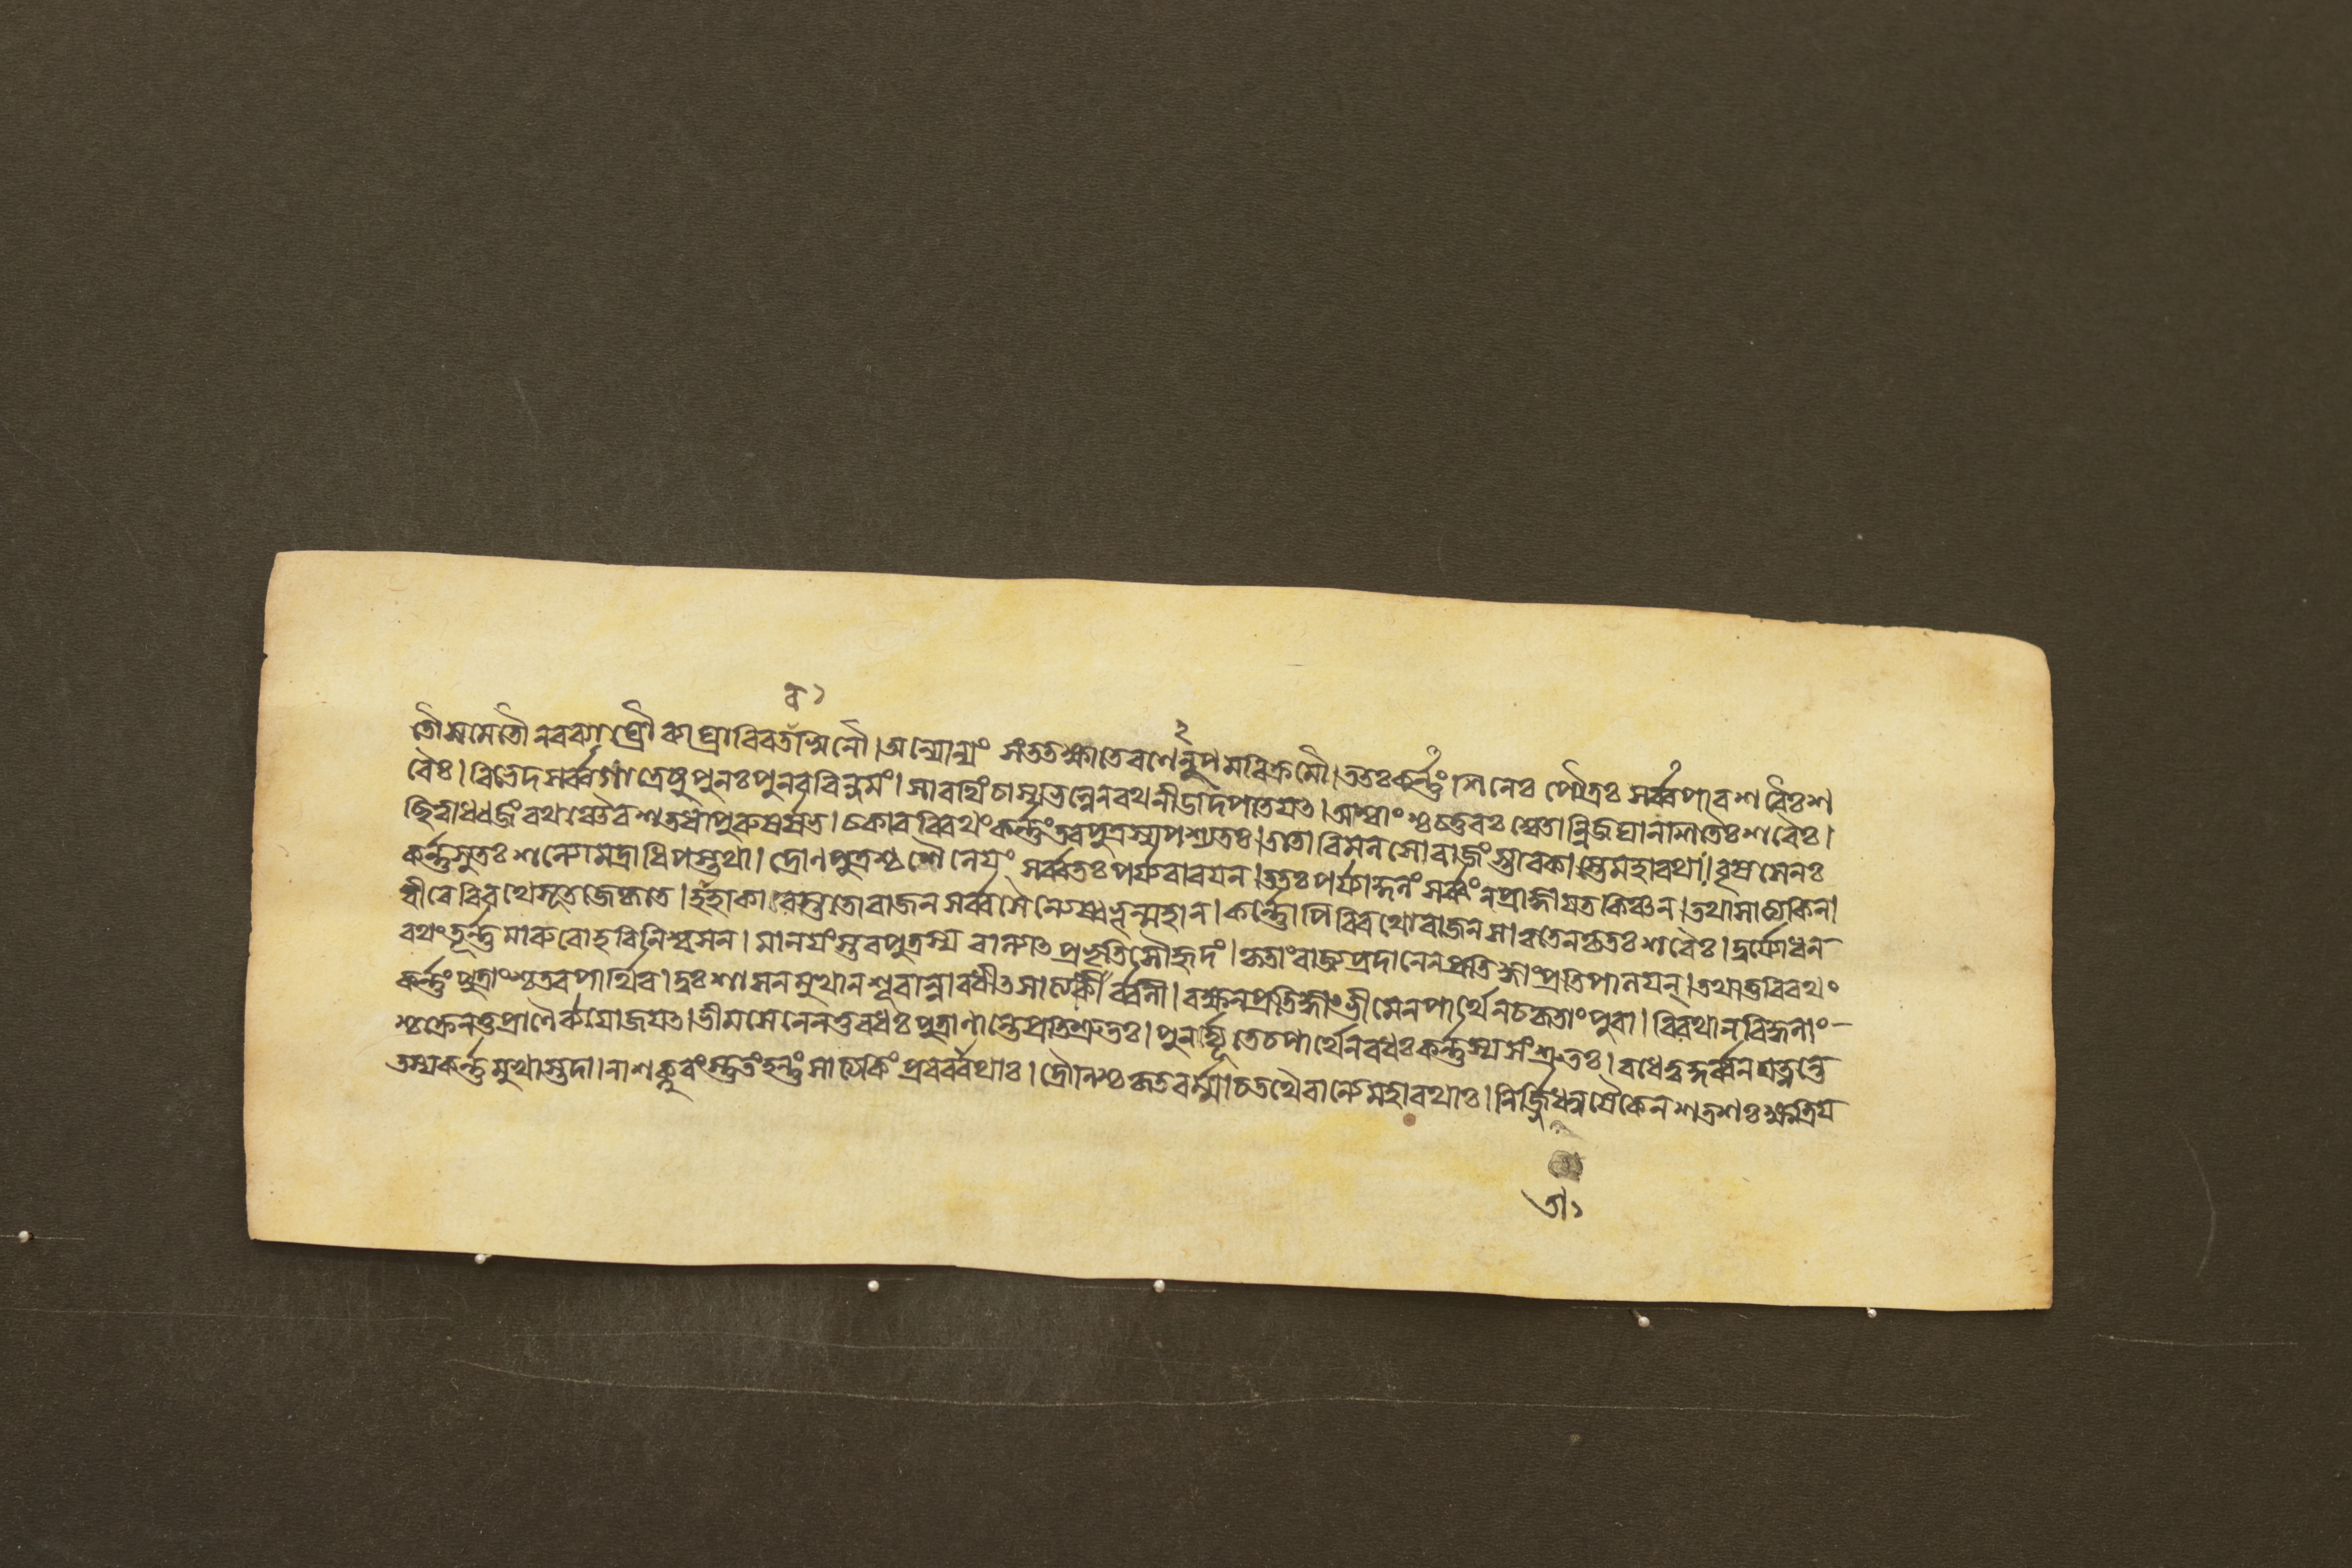 ব ১
২
তৌসমেতৌনরব্যাঘ্রৌব্যাঘ্রাবিবতরস্বিনৌ। অন্যোন্যং সংততক্ষাতেরণেনুপমবিক্রমৌ। ততঃকর্ণ্ণং শিনেঃ পৌত্রঃ সর্ব্বপারশবৈঃশ
রৈঃ। বিভেদসর্ব্বগাত্রেষুপুনঃপুনররিন্দমং। সারথিংচাস্যভল্লেনরথনীডাদপাতয়ৎ। অশ্বাংশ্চচতুরঃশ্বেতান্নিজঘানশিতৈঃশরৈঃ।
ছিত্বাধ্বজংরথঞ্চৈবশতধাপুরুষর্ষভ। চকারবিরথংকর্ণ্ণংতবপুত্রস্যপশ্যতঃ। ততোবিমনসোরাজংস্তাবকাস্তেমহারথাঃ। বৃষসেনঃ
কর্ণ্ণসুতঃ শল্যোমদ্রাধিপস্তথা। দ্রোণপুত্রশ্চশৈনেয়ং সর্ব্বতঃপর্য্যবারয়ন। ততঃপর্য্যাকুলংসর্ব্বংনপ্রাজ্ঞায়তকিঞ্চন। তথাসাত্যকিনা
বীরেবিরথেসূতজেকৃতে। হাহাকারস্ততোরাজনসর্ব্বসৈন্যেষ্বভূন্মহান। কর্ণ্ণোপিবিরথোরাজনসাত্বতেনকৃতঃশরৈঃ। দুর্য্যোধন
রথংতূর্ণ্ণমারুরোহবিনিশ্বসন। মানয়ংস্তবপুত্রস্য বাল্যাৎপ্রভৃতিসৌহৃদং। কৃতাংরাজ্যপ্রদানেনপ্রতিজ্ঞাংপ্রতিপালয়ন্। তথাতুবিরথং
কর্ণ্ণংপুত্রাংশ্চতবপার্থিব। দুঃশাসনমুখানশূরান্নাবধীৎসাত্যকির্ব্বলী। রক্ষনপ্রতিজ্ঞাংভীমেনপার্থেনচকৃতাংপুরা। বিরথানবিহ্বলাং
শ্চক্রেনতুপ্রাণৈর্ব্যযোজয়ৎ। ভীমসেনেনতুবধঃপুত্রাণান্তেপ্রতিশ্রুতঃ। পুনর্দ্যূতেচপার্থেনবধঃকর্ণ্ণস্যসংশ্রুতঃ। বধেত্বকুর্ব্বনযত্নন্তে
তস্যকর্ণ্ণমুখাস্তদা। নাশক্নুবংস্তুতংহন্তুংসাত্যকিংপ্রবরারথাঃ। দ্রৌণিশ্চকৃতবর্ম্মাচতথৈবান্যেমহারথাঃ। নির্জ্জিধনুষৈকেনশতশঃক্ষত্রিয়
তা ১